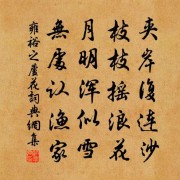 夾岸復連沙
枝枝搖浪花
月明渾似雪
無處認漁家
雍裕之蘆花詞典網集